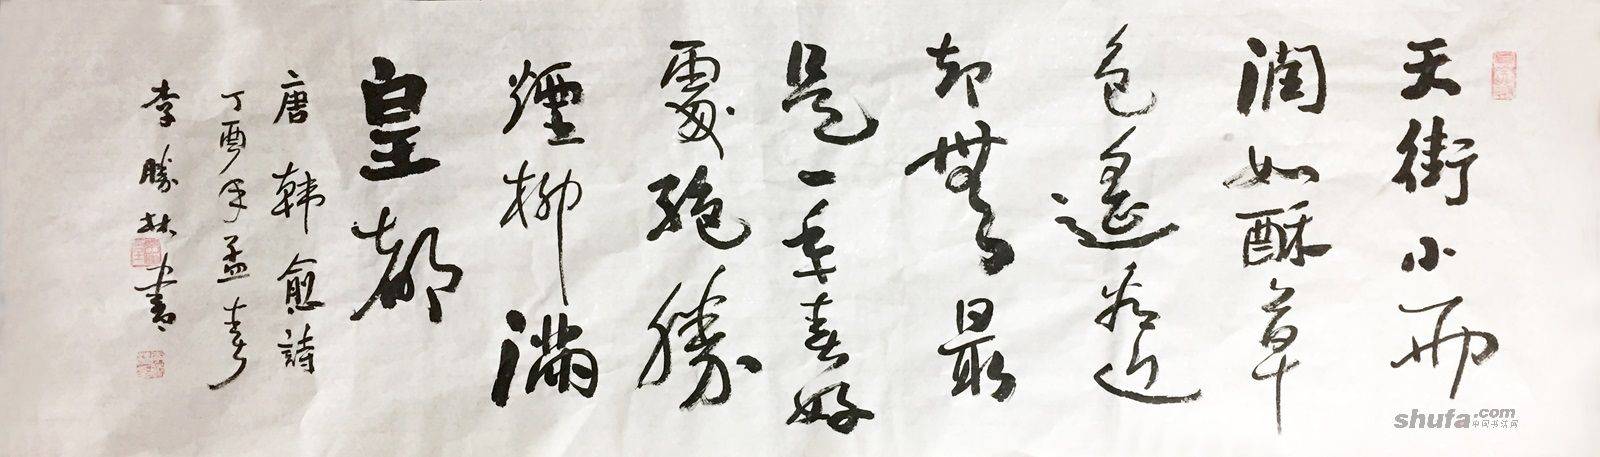 天街小雨
潤如酥草
色遙看近
却無最
是一年春好
處絕勝
煙柳滿
皇都
唐韩愈詩
丁酉年孟春
李勝林書
shufa.com
中国书法网